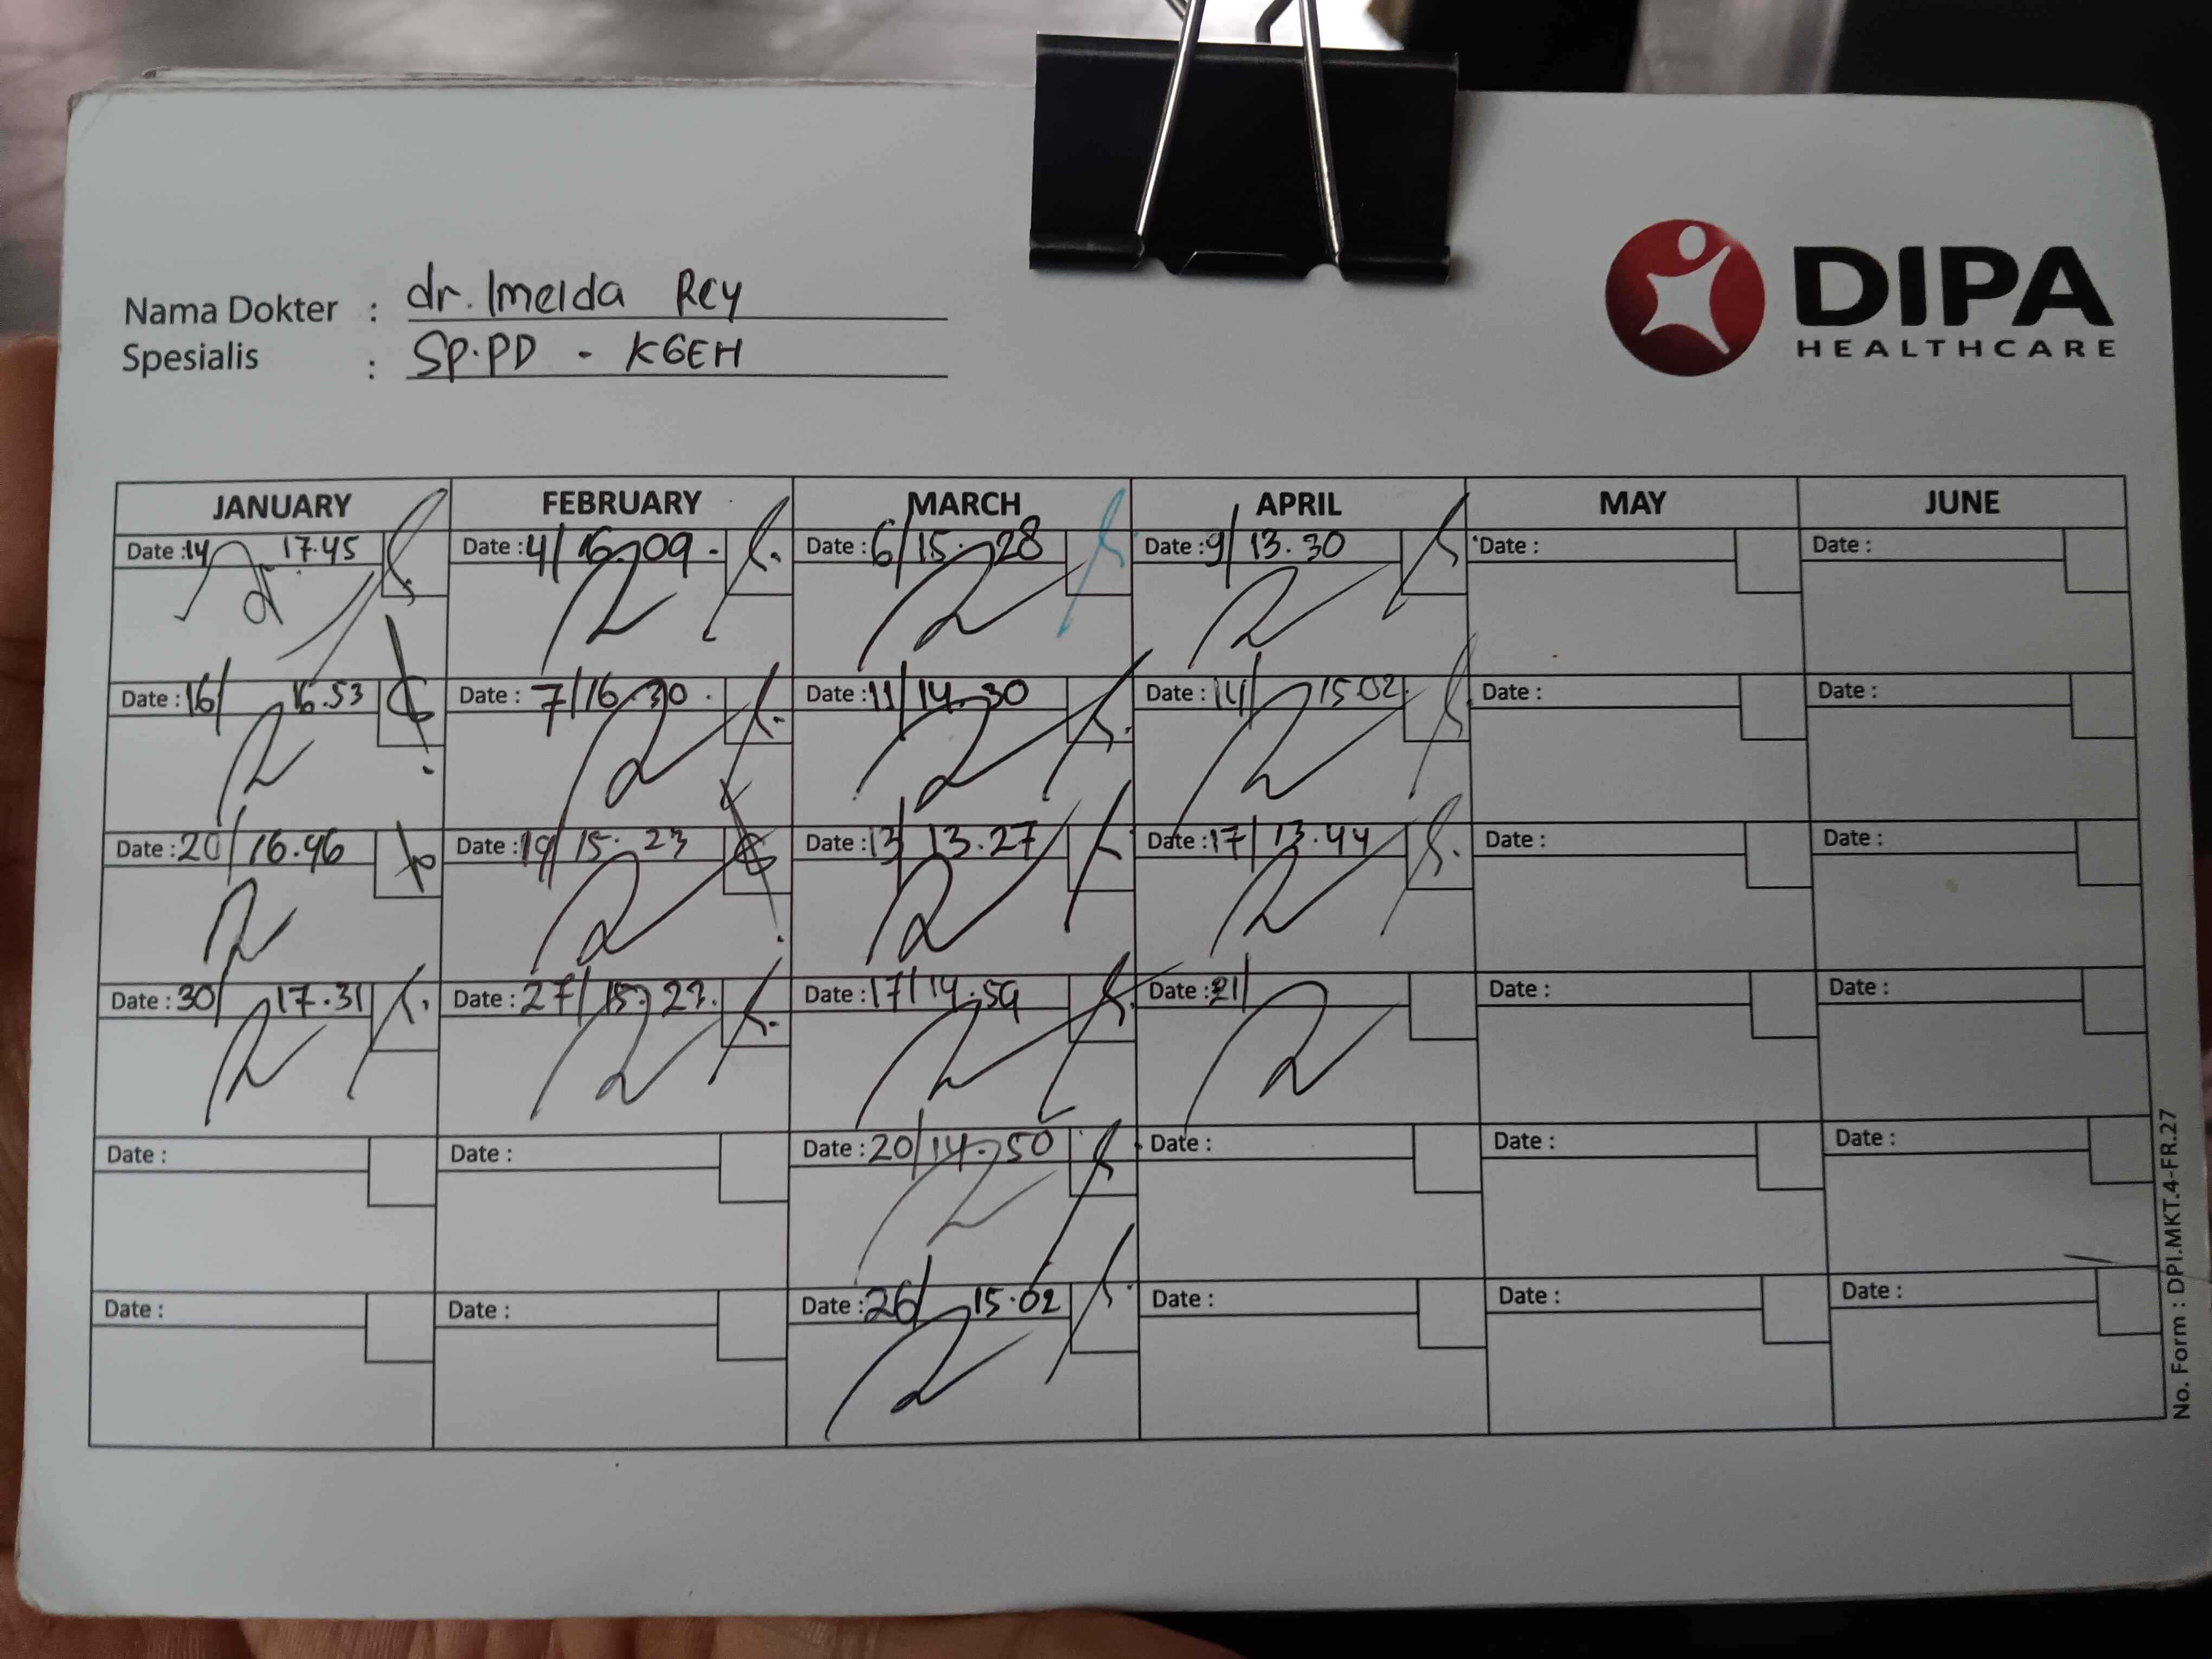 Nama Dokter : dr. Imelda Rey
Spesialis : SP.PD - KGEH
DIPA
HEALTHCARE
JANUARY FEBRUARY MARCH APRIL MAY JUNE
Date : 14 17.45 Date : 4/ 16.09 Date : 6/ 15.28 Date : 9/ 13.30 Date : Date :
Date : 16/ 16.53 Date : 7/ 16.30 Date : 11/ 14.30 Date : 14/ 15.02 Date : Date :
Date : 20/ 16.46 Date : 19/ 15.23 Date : 13/ 13.27 Date : 17/ 13.44 Date : Date :
Date : 30/ 17.31 Date : 27/ Date : 17/ 14.59 Date : 21/ Date : Date :
Date : Date : Date : 20/ 14.50 Date : Date : Date :
Date : Date : Date : 26/ 15.02 Date : Date : Date :
No. Form : DPI.MKT.4-FR.27